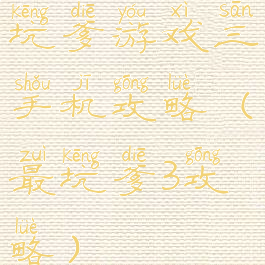 kēng diē yóu xì sān
坑爹游戏三
shǒu jī gōng lüè
手机攻略（
zuì kēng diē gōng
最坑爹3攻
lüè
略）